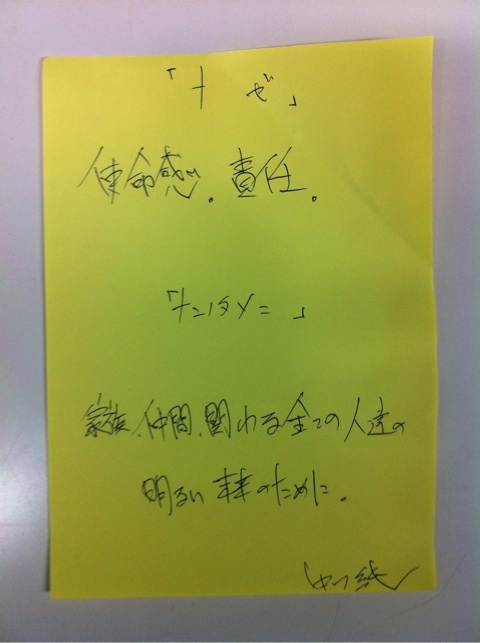 「ナゼ」
使命感。責任。
「ナンノタメニ」
家族、仲間、関わる全ての人達の
明るい未来のために。